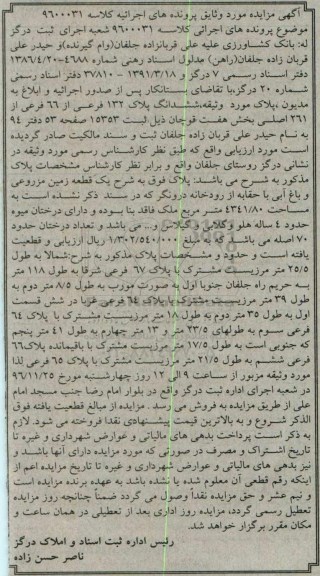 آگهی مزایده مورد وثایق پرونده های اجرائیه کلاسه ۹۶۰۰۰۳۱
موضوع پرونده های اجرائی کلاسه ۹۶۰۰۰۳۱ شعبه اجرای ثبت درگز
له: بانک کشاورزی علیه علی قربانزاده جلفان(وام گیرنده)و حیدر علی
قربان زاده جلفان(راهن) مدلول اسناد رهنی شماره ۴۶۸۸-۱۳۸۶/۴/۲۰
دفتر اسناد رسمی ۷ درگز و ۱۳۹۱/۳/۱۸ – ۳۷۸۱۰ دفتر اسناد رسمی
شماره ۲۰ درگز،با تقاضای بستانکار پس از صدور اجرائیه و ابلاغ به
مدیون ،پلاک مورد وثیقه،ششدانگ پلاک ۱۳۲ فرعی از ۶۶ فرعی از
۲۶۱ اصلی بخش هفت قوچان ذیل ثبت ۱۵۳۵۳ صفحه ۵۳ دفتر ۹۴
به نام حیدر علی قربان زاده جلفان ثبت و سند مالکیت صادر گردیده
است مورد ارزیابی واقع که طبق نظر کارشناس رسمی مورد وثیقه در
نشانی درگز روستای جلفان واقع و برابر نظر کارشناس مشخصات پلاک
مذکور به شرح می باشد: پلاک فوق به شرح یک قطعه زمین مزروعی
و باغ آبی با حقابه از رودخانه درونگر که در سند ذکر نشده است به
مساحت ۴۳۴۱/۸۰ متر مربع ملک فاقد بنا بوده و دارای درختان میوه
حدود ۴ ساله هلو و گلابی و گیلاس و... می باشد و تعداد درختان حدود
۷۰ اصله می باشد که به مبلغ ۱/۳۰۲/۵۴۰/۰۰۰ ریال ارزیابی و قطعیت
یافته است و حدود و مشخصات پلاک مذکور به شرح:شمالا به طول
۲۵/۵ متر مرزیست مشترک با پلاک ۶۷ فرعی شرقا به طول ۱۱۸ متر
به حریم راه جلفان جنوبا اول به صورت مورب به طول ۸/۵ متر دوم به
طول ۳۹ متر مرزیست مشترک با پلاک ۶۴ فرعی غربا در شش قسمت
اول به طول ۳۵ متر دوم به طول ۱۸ متر مرزیست مشترک با پلاک ۶۴
فرعی سوم به طولهای ۲۳/۵ متر و ۱۳ متر چهارم به طول ۴۱ متر پنجم
که جنوبی است به طول ۱۷/۵ متر مرزیست مشترک با باقیمانده پلاک۶۶
فرعی ششم به طول ۲۱/۵ متر مرزیست مشترک با پلاک ۶۵ فرعی لذا
مورد وثیقه مزبور از ساعت ۹ الی ۱۲ روز چهارشنبه مورخ ۹۶/۱۱/۲۵
در شعبه اجرای اداره ثبت درگز واقع در بلوار امام رضا جنب مسجد امام
علی از طریق مزایده به فروش می رسد . مزایده از مبالغ قطعیت یافته فوق
الذکر شروع و به بالاترین قیمت پیشنهادی نقدا فروخته می شود. لازم
به ذکر است پرداخت بدهی های مالیاتی و عوارض شهرداری و غیره تا
تاریخ اشتراک و مصرف در صورتی که مورد مزایده دارای آنها باشد و
نیز بدهی های مالیاتی و عوارض شهرداری و غیره تا تاریخ مزایده اعم از
اینکه رقم قطعی آن معلوم شده یا نشده باشد به عهده برنده مزایده است
و نیم عشر و حق مزایده نقداً وصول می گردد ضمناً چنانچه روز مزایده
تعطیل رسمی گردد، مزایده روز اداری بعد از تعطیلی در همان ساعت و
مکان مقرر برگزار خواهد شد.
رئیس اداره ثبت اسناد و املاک درگز
ناصر حسن زاده